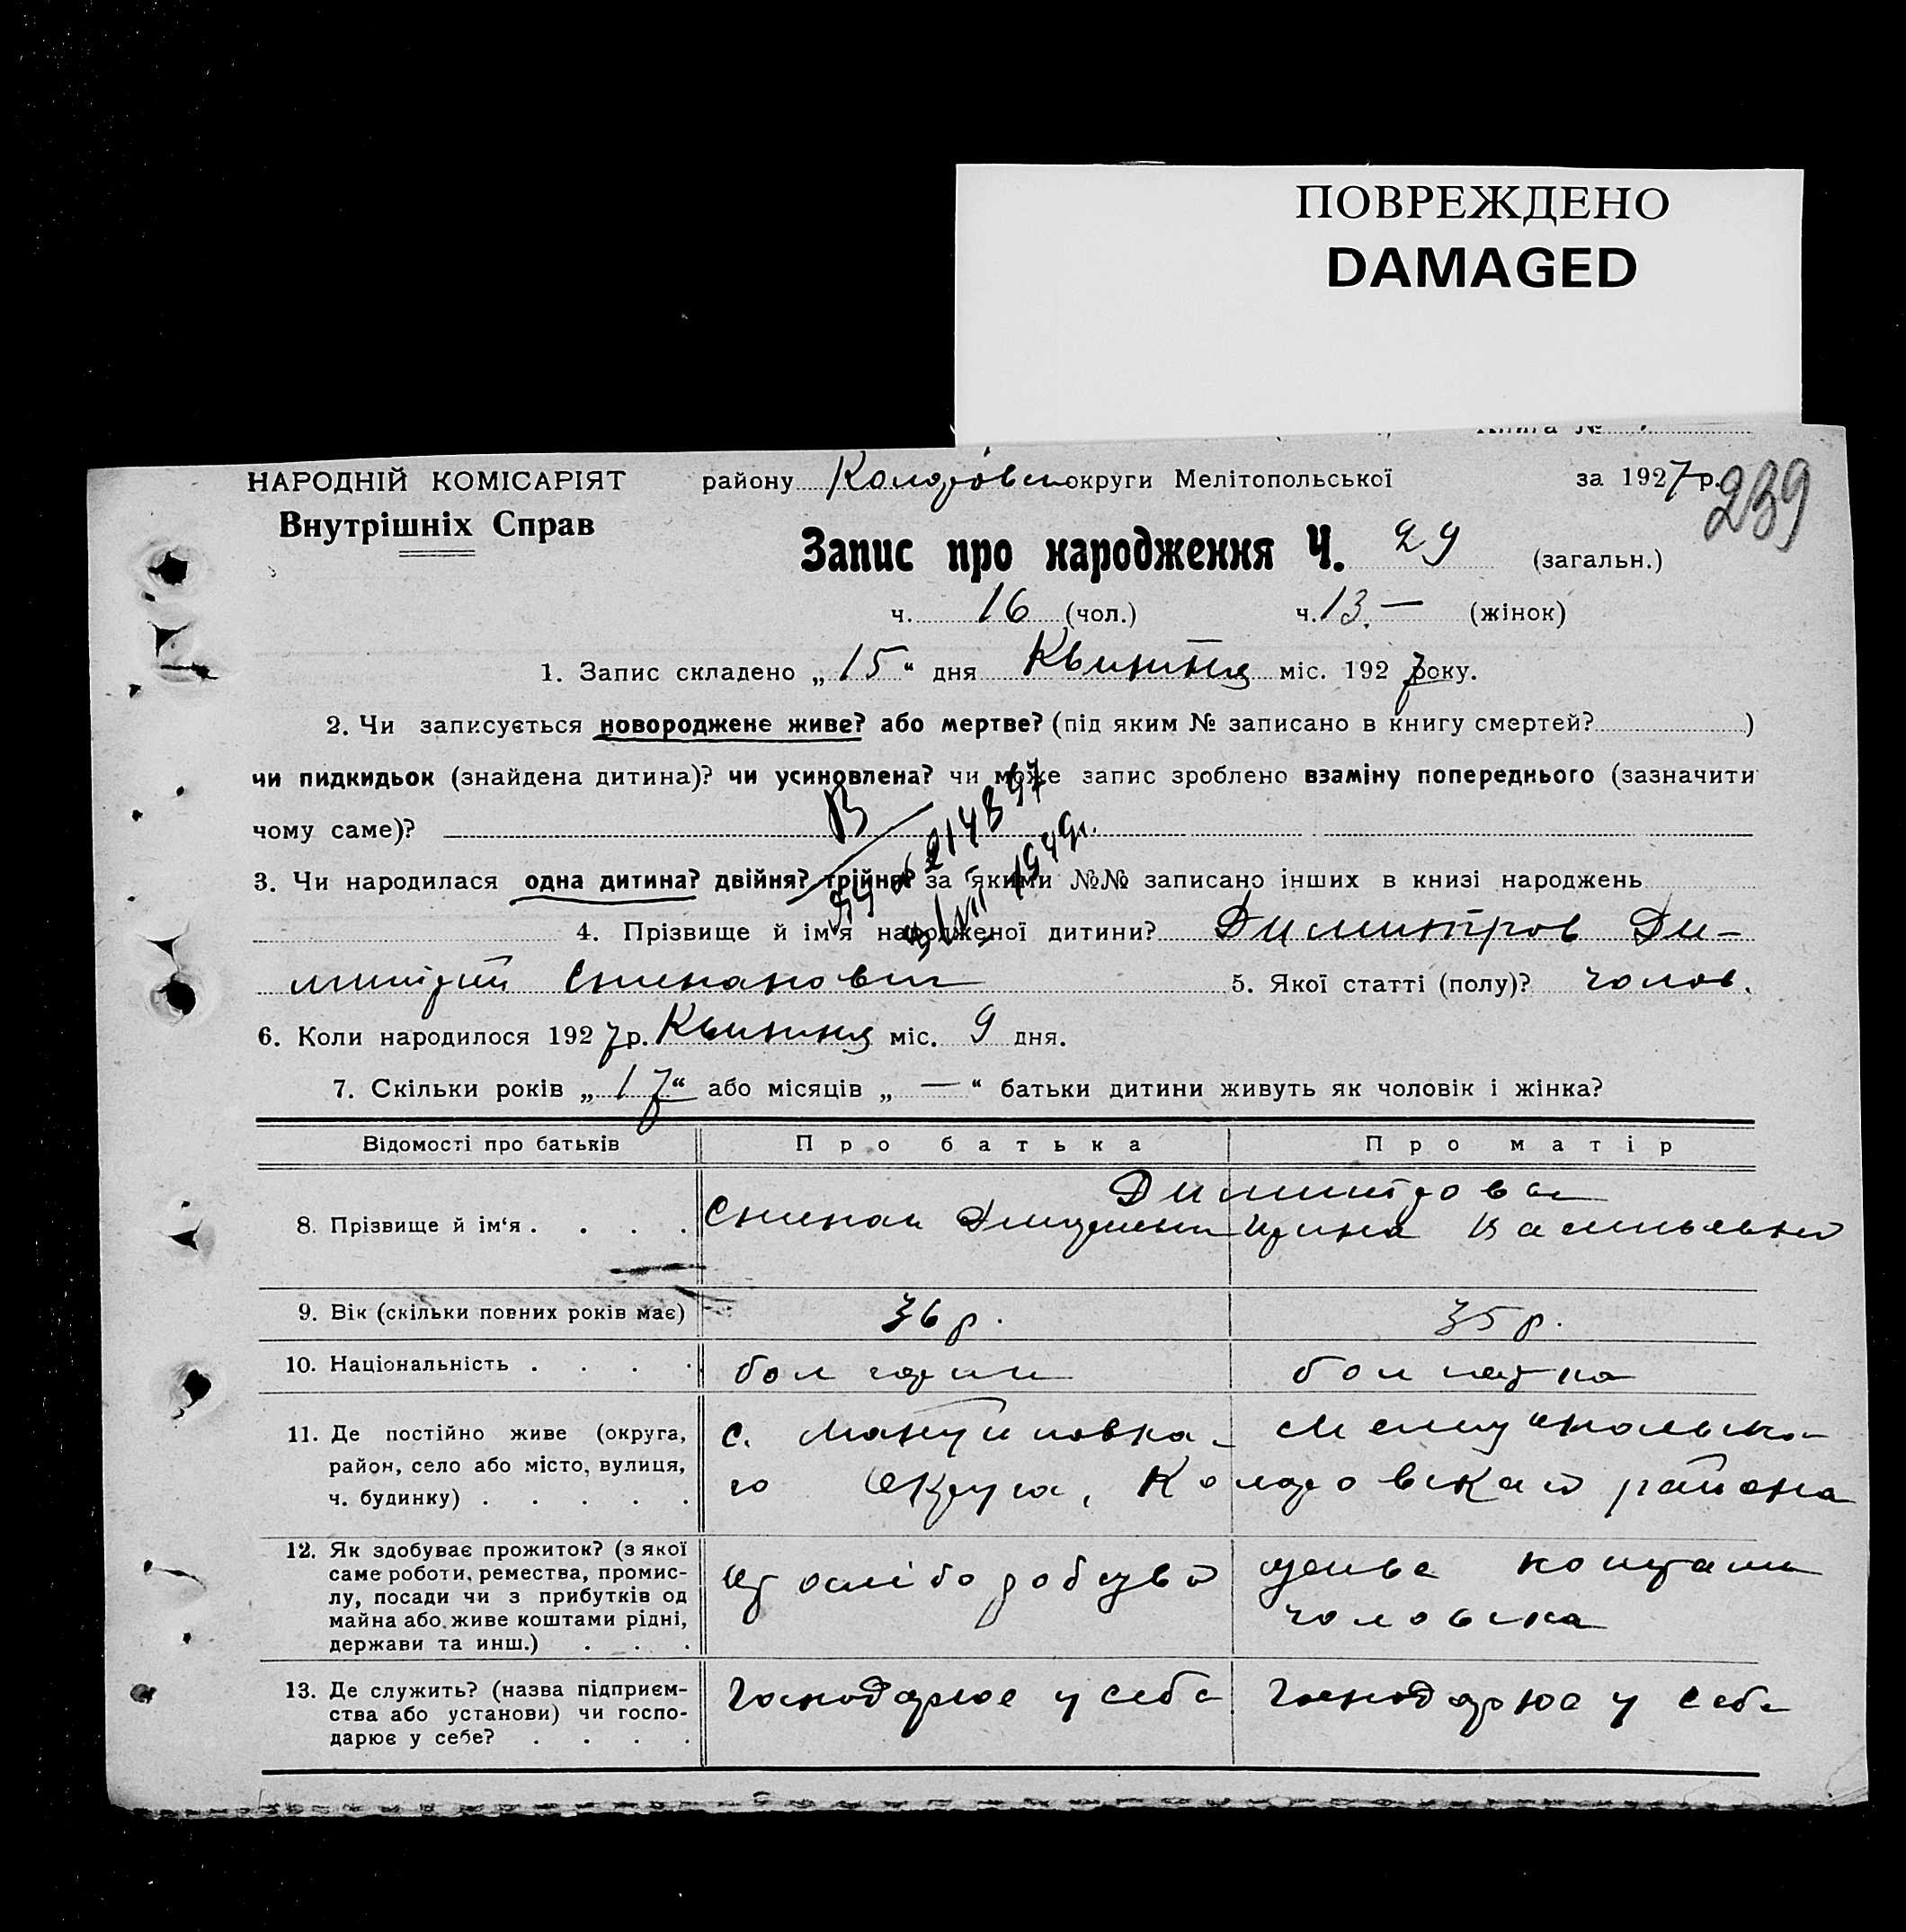 ПОВРЕЖДЕНО
DAMAGED
Книга №
НАРОДНІЙ КОМІСАРІЯТ
Внутрішніх Справ
району Коларовськ округи Мелітопольської за 1927 р.
239
Запис про народження Ч. 29 (загальн.)
ч. 16 (чол.) ч. 13. — (жінок)
1. Запис складено „ 15 “ дня Квитня міс. 1927 року.
2. Чи записується новороджене живе? або мертве? (під яким № записано в книгу смертей? )
чи пидкидьок (знайдена дитина)? чи усиновлена? чи може запис зроблено взаміну попереднього (зазначити
чому саме)?
3. Чи народилася одна дитина? двійня? трійня? за якими №№ записано інших в книзі народжень
1949г.
4. Прізвище й ім'я народженої дитини? Димитров Ди-
митрий Степанович 5. Якої статті (полу)? чолов.
6. Коли народилося 1927 р. Квитня міс. 9 дня.
7. Скільки років „ 17 “ або місяців „ — “ батьки дитини живуть як чоловік і жінка?
Відомості про батьків Про батька Про матір
8. Прізвище й ім'я . . . . Димитрова
Степан Ирина Васильевна
9. Вік (скільки повних років має) 36 р. 35 р.
10. Національність . . . . болгарин болгарка
11. Де постійно живе (округа,
район, село або місто, вулиця,
ч. будинку) . . . . .
с. Мануиловка. Мелитопольско-
го Округа, Коларовского района
12. Як здобуває прожиток? (з якої
саме роботи, ремества, промис-
лу, посади чи з прибутків од
майна або живе коштами рідні,
держави та инш.) . . .
хлібороб живе коштами
чоловіка
13. Де служить? (назва підприєм-
ства або установи) чи госпо-
дарює у себе? . . . .
господарює у себе господарює у себе